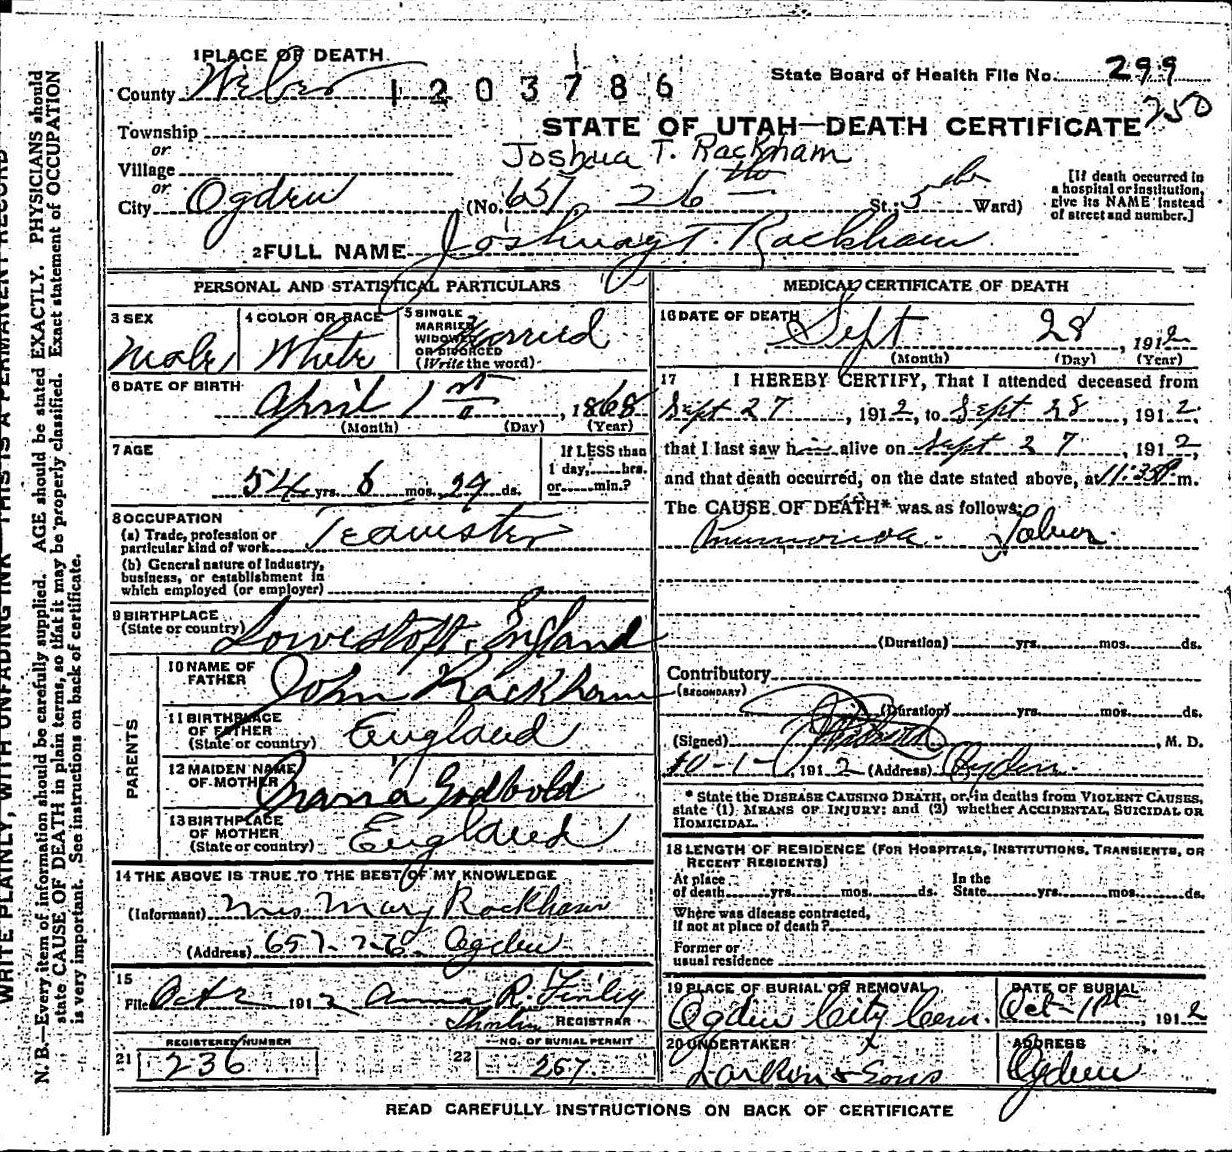 1 PLACE OF DEATH
County Weber
1203786
State Board of Health File No. 299
250
STATE OF UTAH—DEATH CERTIFICATE
Township
or
Village
or
City Ogden
Joshua T. Rackham
(No. 657 26th St.; 5th Ward)
[If death occurred in
a hospital or institution,
give its NAME instead
of street and number.]
2 FULL NAME Joshuay T. Rackham
PERSONAL AND STATISTICAL PARTICULARS
3 SEX
Male
4 COLOR OR RACE
White
5 SINGLE
MARRIED
WIDOWED
OR DIVORCED
(Write the word)
Married
6 DATE OF BIRTH
April 1st, 1868
(Month) (Day) (Year)
7 AGE
54 yrs. 6 mos. 29 ds.
If LESS than
1 day, hrs.
or min.?
8 OCCUPATION
(a) Trade, profession or
particular kind of work Teamster
(b) General nature of Industry,
business, or establishment in
which employed (or employer)
9 BIRTHPLACE
(State or country) Lowestoft, England
PARENTS
10 NAME OF
FATHER John Rackham
11 BIRTHPLACE
OF FATHER
(State or country) England
12 MAIDEN NAME
OF MOTHER Maria Godbold
13 BIRTHPLACE
OF MOTHER
(State or country) England
14 THE ABOVE IS TRUE TO THE BEST OF MY KNOWLEDGE
(Informant) Mrs Mary Rackham
(Address) 657-26 Ogden
15
Filed Oct 2 1912 Anna R. Finley
REGISTRAR
REGISTERED NUMBER
21 236
NO. OF BURIAL PERMIT
22 267
MEDICAL CERTIFICATE OF DEATH
16 DATE OF DEATH
Sept 28, 1912
(Month) (Day) (Year)
17 I HEREBY CERTIFY, That I attended deceased from
Sept 27, 1912, to Sept 28, 1912,
that I last saw him alive on Sept 27, 1912,
and that death occurred, on the date stated above, at 11:35P m.
The CAUSE OF DEATH* was as follows:
Pneumonia. Lobar.
(Duration) yrs. mos. ds.
Contributory
(SECONDARY)
(Duration) yrs. mos. ds.
(Signed) , M. D.
10-1-, 1912 (Address) Ogden.
* State the DISEASE CAUSING DEATH, or, in deaths from VIOLENT CAUSES,
state (1) MEANS OF INJURY; and (2) whether ACCIDENTAL, SUICIDAL OR
HOMICIDAL.
18 LENGTH OF RESIDENCE (FOR HOSPITALS, INSTITUTIONS, TRANSIENTS, OR
RECENT RESIDENTS)
At place
of death yrs. mos. ds.
In the
State yrs. mos. ds.
Where was disease contracted,
if not at place of death?
Former or
usual residence
19 PLACE OF BURIAL OR REMOVAL
Ogden City Cem.
DATE OF BURIAL
Oct-1st, 1912
20 UNDERTAKER
Larkin & Sons
ADDRESS
Ogden
READ CAREFULLY INSTRUCTIONS ON BACK OF CERTIFICATE
WRITE PLAINLY, WITH UNFADING INK—THIS IS A PERMANENT RECORD
N. B.—Every item of information should be carefully supplied. AGE should be stated EXACTLY. PHYSICIANS should
state CAUSE OF DEATH in plain terms, so that it may be properly classified. Exact statement of OCCUPATION
is very important. See instructions on back of certificate.